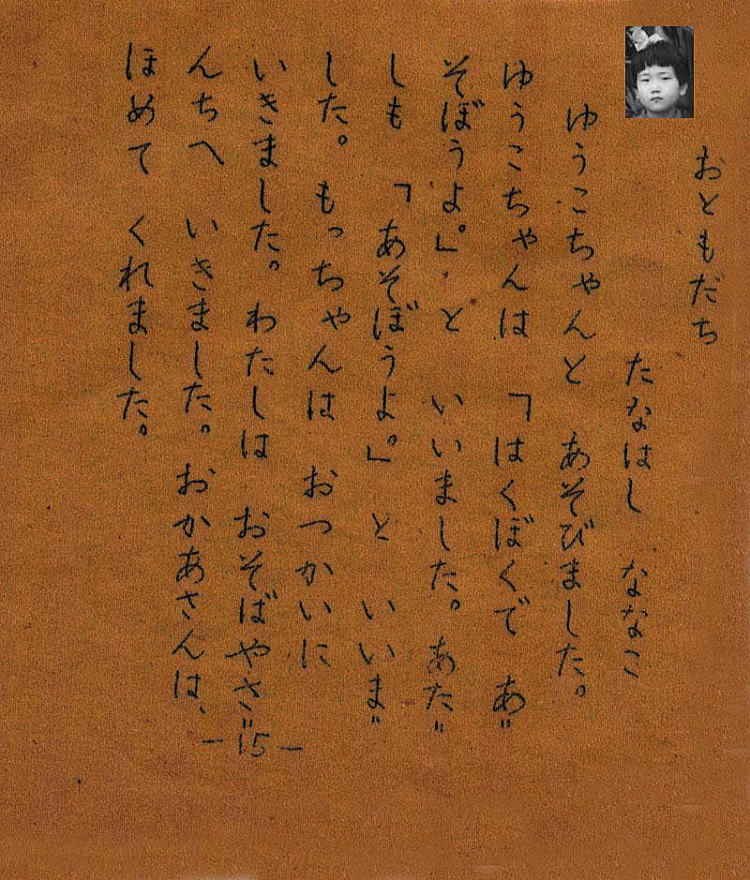 おともだち
たなはし ななこ
ゆうこちゃんと あそびました。
ゆうこちゃんは 「はくぼくで あ〃
そぼうよ。」と いいました。あた〃
しも 「あそぼうよ。」と いいま〃
した。 もっちゃんは おつかいに
いきました。わたしは おそばやさ〃
んちへ いきました。おかあさんは、
ほめて くれました。
－15－